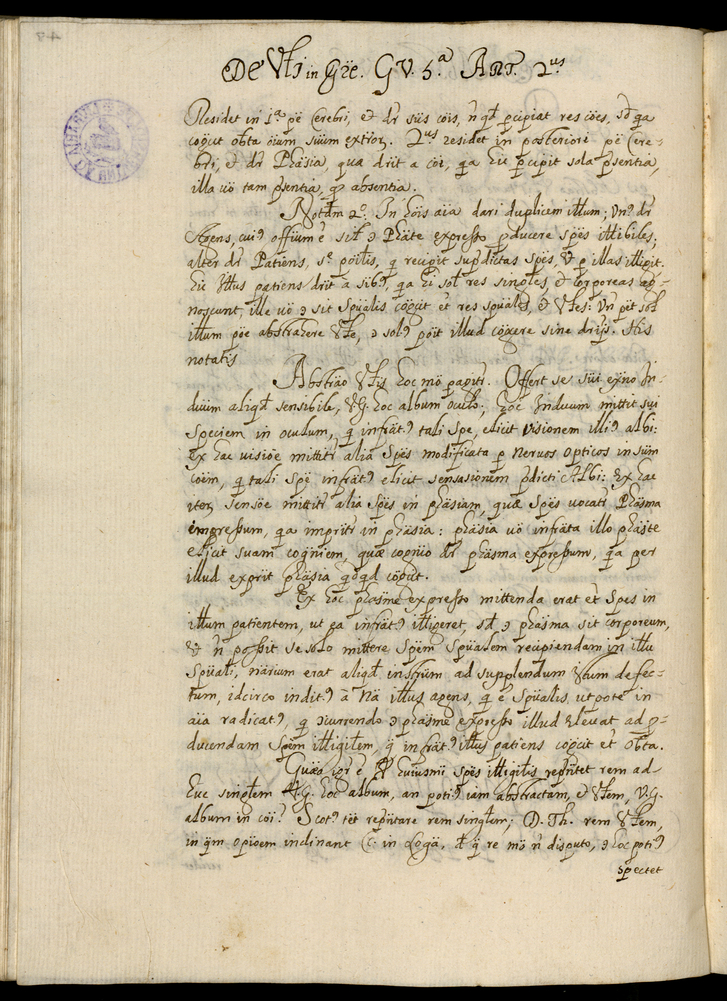 De Vlis in Gre. Qu. 5.ª Art. 2.us
Residet in 1.ª pe Cerebri, et dr sūs cōis, n̄ qd pcipiat res cōes, sd qa
cogcit obta oīum sūum extror. 2.us residet in posteriori pē Cere=
bri, et dr Phāsia, qua drit a cōi, qa hic pcipit sola psentia,
illa vō tam psentia, qz absentia.
Notdm 2.º In hōis aīa dari duplicem illum; Vn9 dr
Agens, cui9 offium ē sil cū Phāte expresso pducere spēs illibiles;
alter dr Patiens, se poilis, q recipit supdictas spēs, et p illas illigit.
hic Illus patiens drit a sib9, qa hi sol res singles, et corporeas cog=
noscunt; ille vō cū sit spūalis cogcit et res spūales, et Vles: Vn pēt sol
illum pōe abstrahere Vle, cū sol9 pōit illud cogere sine driis. His
notatis
Abstrāo Vlis hoc mō pagitr. Offert se sūi exno In=
duum aliqd sensibile, V.G. hoc album oculo; hoc Induum mittit sui
speciem in oculum, q infrat9 tali spe, elicit visionem illi9 albi:
ex hac visiōe mittitr alia spēs modificata p nervos opticos in sūm
cōem, q tali spē infrat9 elicit sensasionem pdicti Albi: Ex hac
itor sensōe mittitr alia spēs in phāsiam, quæ spēs vocatr Phāsma
impressum, qa impritr in phāsia: phāsia vō infrāta illo phāste
elicit suam cogniem, quæ cognio dr phāsma expressum, qa per
illud exprit phāsia qdqd cogcit.
Ex hoc phāsme expresso mittenda erat et spes in
illum patientem, ut ea infrat9 illigeret, sd cū phāsma sit corporeum,
et n̄ possit se solo mittere spēm spūalem recipiendam in illu
spūali, nārium erat aliqd instrūm ad supplendum istum defec=
tum, idcirco indit9 à Nā illus agens, q ē spūalis utpote in
aīa radicat9, q cōcurrendo cū phāsme expresso illud elevat ad p=
ducendam spēm illigilem, q infrat9 illus patiens cogcit et obta.
Quæo igr ē huiusmi spēs illigilis repntet rem ad=
huc singlem V.G. hoc album, an poti9 iam abstractam, et Vlem, V.G.
album in cōi? Scot9 tēt repntare rem singlem; D. Th. rem Vlem,
in qm opioem inclinant C. in Logā, de q re mō n̄ disputo, cū hoc poti9
spectet